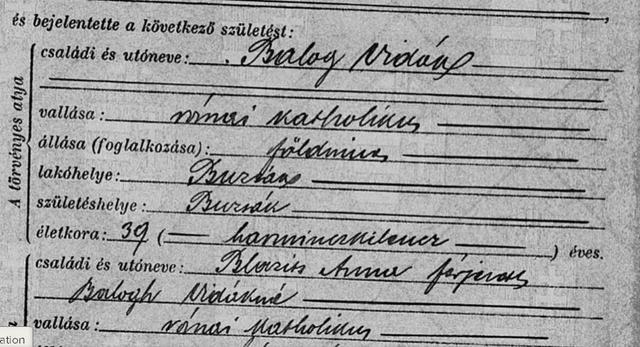 és bejelentette a következő születést:
családi és utóneve: Balog Vidák
vallása: római katholikus
állása (foglalkozása): földmives
lakóhelye: Buzsák
születéshelye: Buzsák
életkora: 39 (harminczkilencz) éves.
családi és utóneve: Blazsis Anna férjezett
Balogh Vidákné
vallása: római katholikus
A törvényes atya
ation